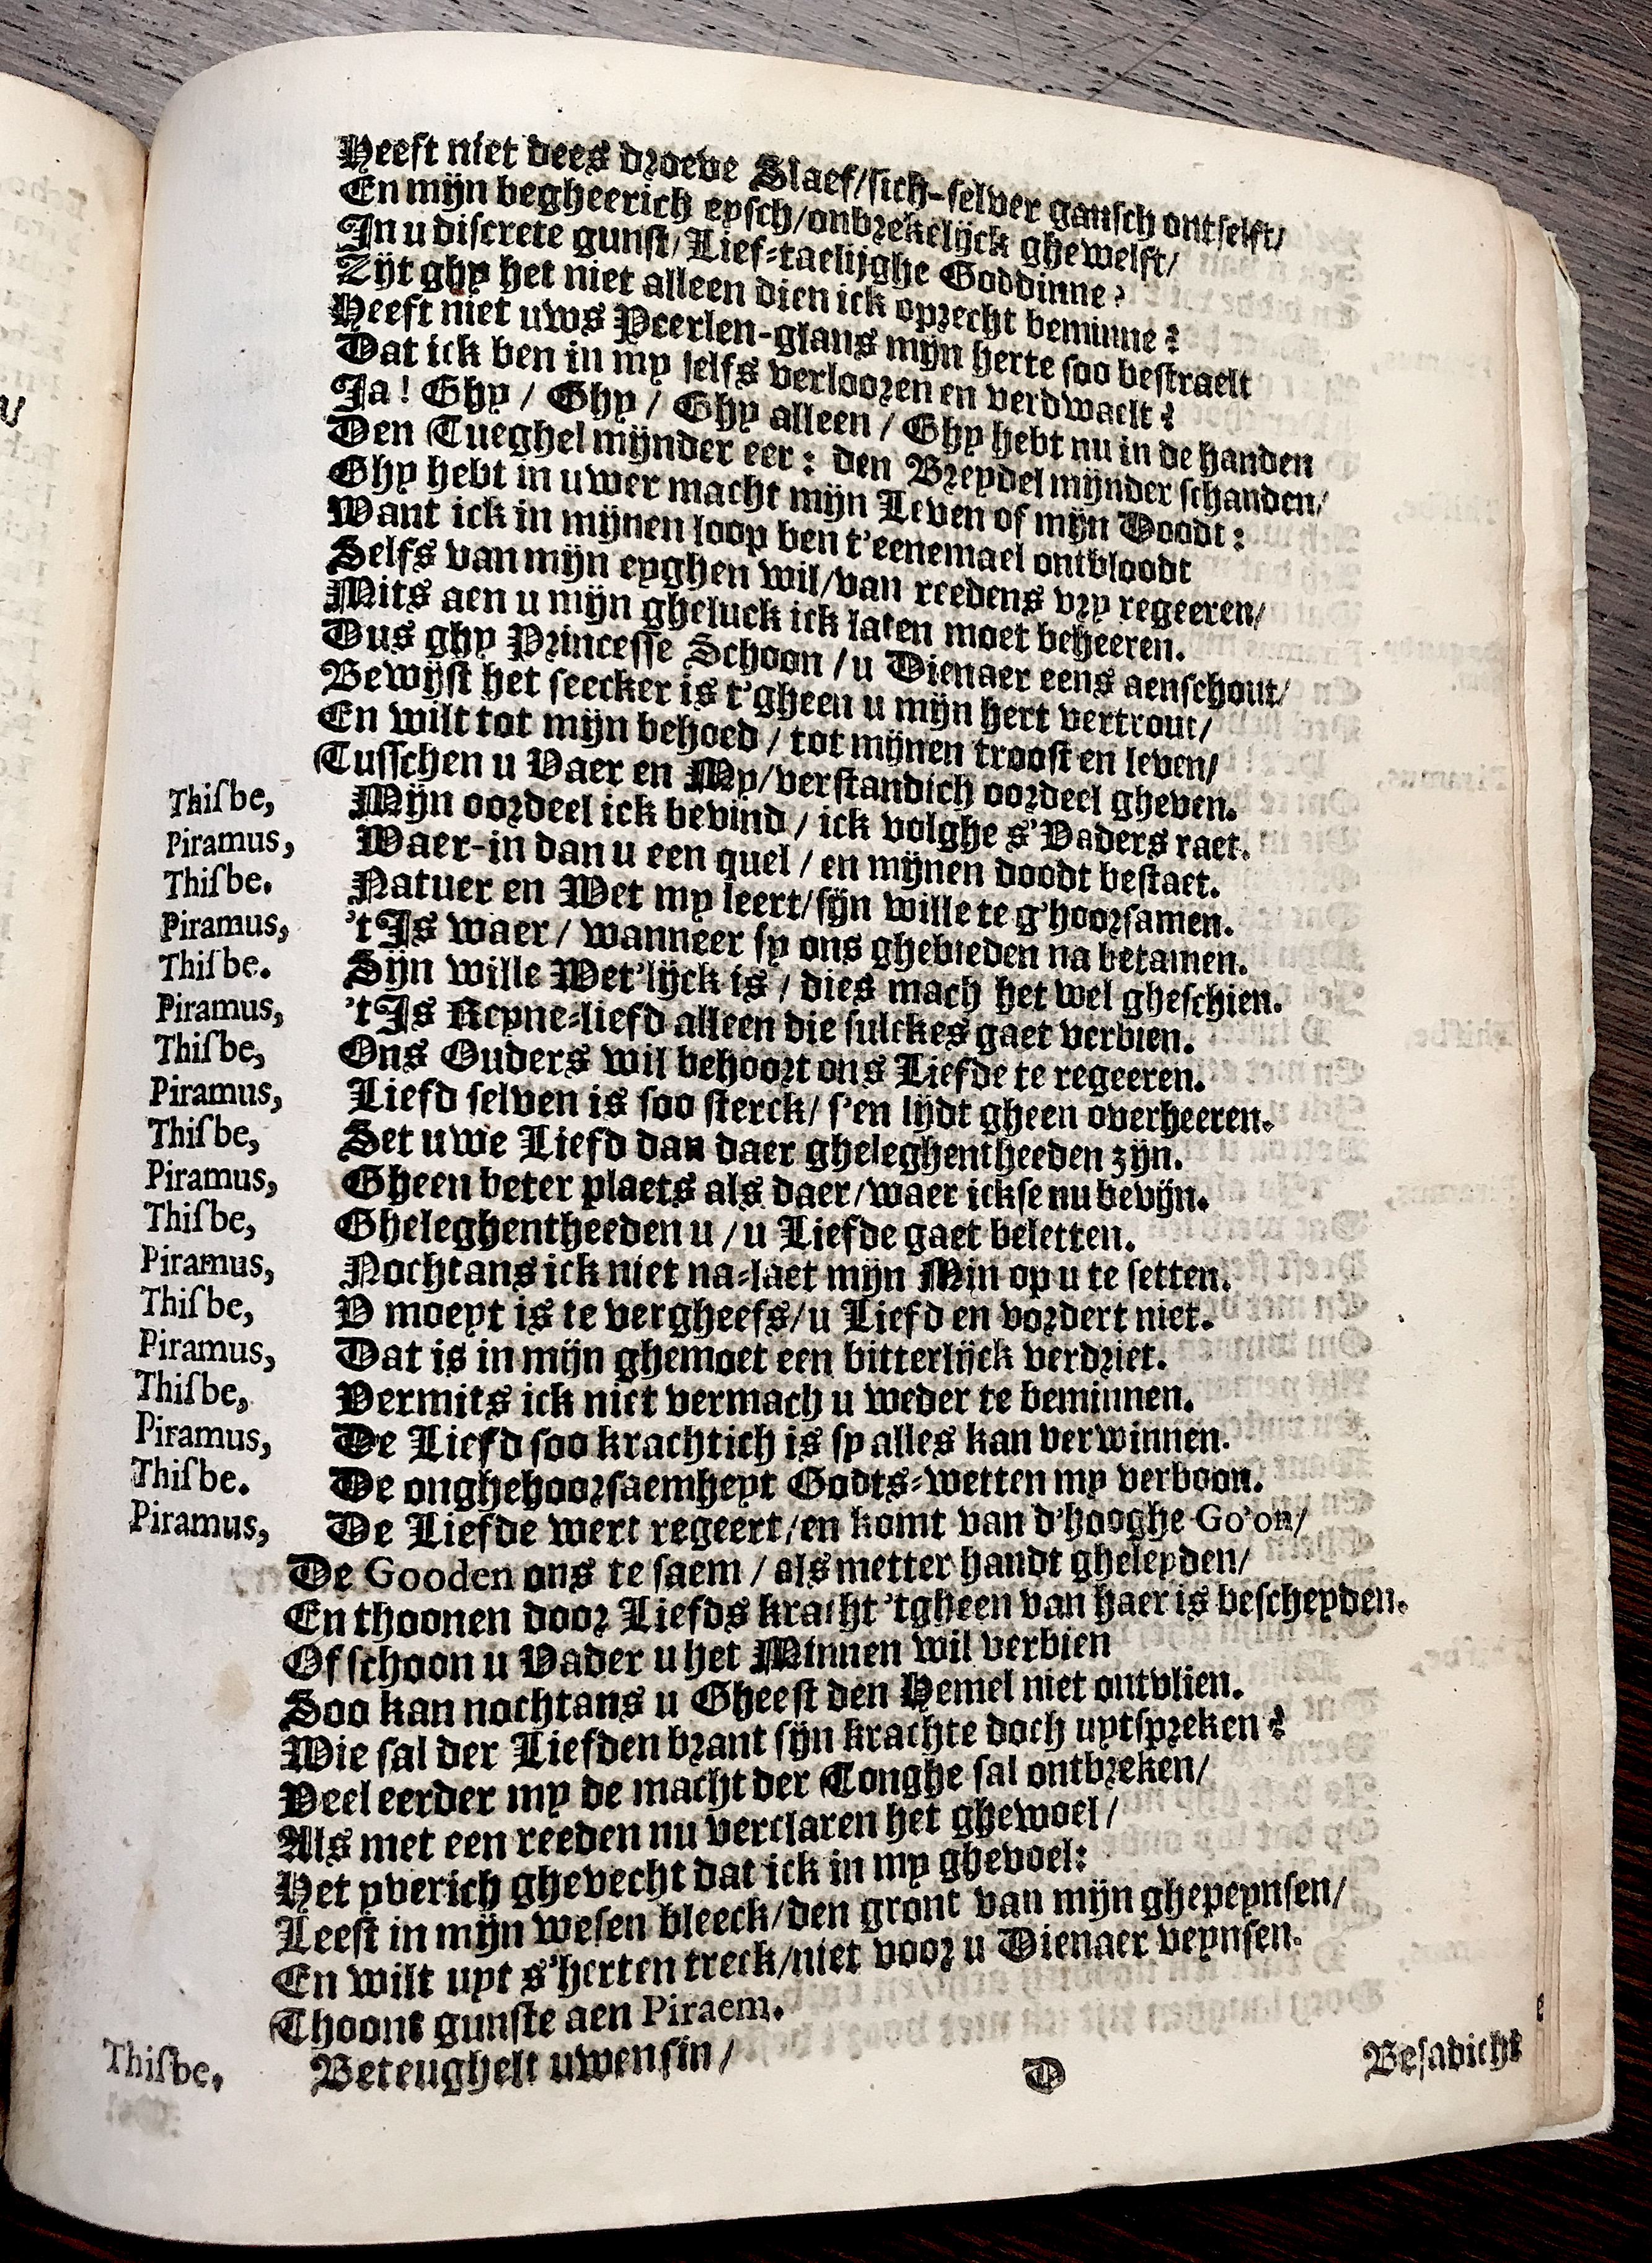 Heeft niet dees droeve Slaef/sich-selver gansch ontselft/
En mijn begheerich eysch/onbrekelijck ghewelft/
In u discrete gunst/Lief-taelijghe Goddinne?
Zijt ghy het niet alleen dien ick oprecht beminne?
Heeft niet uws Peerlen-glans mijn herte soo bestraelt
Dat ick ben in my selfs verlooren en verdwaelt?
Ja! Ghy / Ghy / Ghy alleen / Ghy hebt nu in de handen
Den Tueghel mijnder eer: den Breydel mijnder schanden/
Ghy hebt in uwer macht mijn Leven of mijn Doodt:
Want ick in mijnen loop ben t'eenemael ontbloodt
Selfs van mijn eyghen wil/van reedens vry regeeren/
Mits aen u mijn gheluck ick laten moet beheeren.
Dus ghy Princesse Schoon / u Dienaer eens aenschout/
Bewijst het seecker is t'gheen u mijn hert vertrout/
En wilt tot mijn behoed / tot mijnen troost en leven/
Tusschen u Vaer en My/verstandich oordeel gheven.
Thisbe, Mijn oordeel ick bevind / ick volghe s'Vaders raet.
Piramus, Waer-in dan u een quel / en mijnen doodt bestaet.
Thisbe. Natuer en Wet my leert/sijn wille te g'hoorsamen.
Piramus, 't Is waer / wanneer sy ons ghebieden na betamen.
Thisbe. Sijn wille Wet'lijck is / dies mach het wel gheschien.
Piramus, 't Is Reyne-liefd alleen die sulckes gaet verbien.
Thisbe, Ons Ouders wil behoort ons Liefde te regeeren.
Piramus, Liefd selven is soo sterck/ s'en lijdt gheen overheeren.
Thisbe, Set uwe Liefd dan daer gheleghentheeden zijn.
Piramus, Gheen beter plaets als daer/waer ickse nu bevijn.
Thisbe, Gheleghentheeden u / u Liefde gaet beletten.
Piramus, Nochtans ick niet na-laet mijn Min op u te setten.
Thisbe, V moeyt is te vergheefs/u Liefd en vordert niet.
Piramus, Dat is in mijn ghemoet een bitterlijck verdriet.
Thisbe, Vermits ick niet vermach u weder te beminnen.
Piramus, De Liefd soo krachtich is sy alles kan verwinnen.
Thisbe. De onghehoorsaemheyt Godts-wetten my verboon.
Piramus, De Liefde wert regeert/en komt van d'hooghe Go'on/
De Gooden ons te saem / als metter handt gheleyden/
En thoonen door Liefds kracht 'tgheen van haer is bescheyden.
Of schoon u Vader u het Minnen wil verbien
Soo kan nochtans u Gheest den Hemel niet ontvlien.
Wie sal der Liefden brant sijn krachte doch uytspreken?
Veel eerder my de macht der Tonghe sal ontbreken/
Als met een reeden nu verclaren het ghewoel/
Het yverich ghevecht dat ick in my ghevoel:
Leest in mijn wesen bleeck/den gront van mijn ghepeynsen/
En wilt uyt s'herten treck/niet voor u Dienaer veynsen.
Thoont gunste aen Piraem.
Thisbe, Beteughelt uwen sin/
D Besadicht